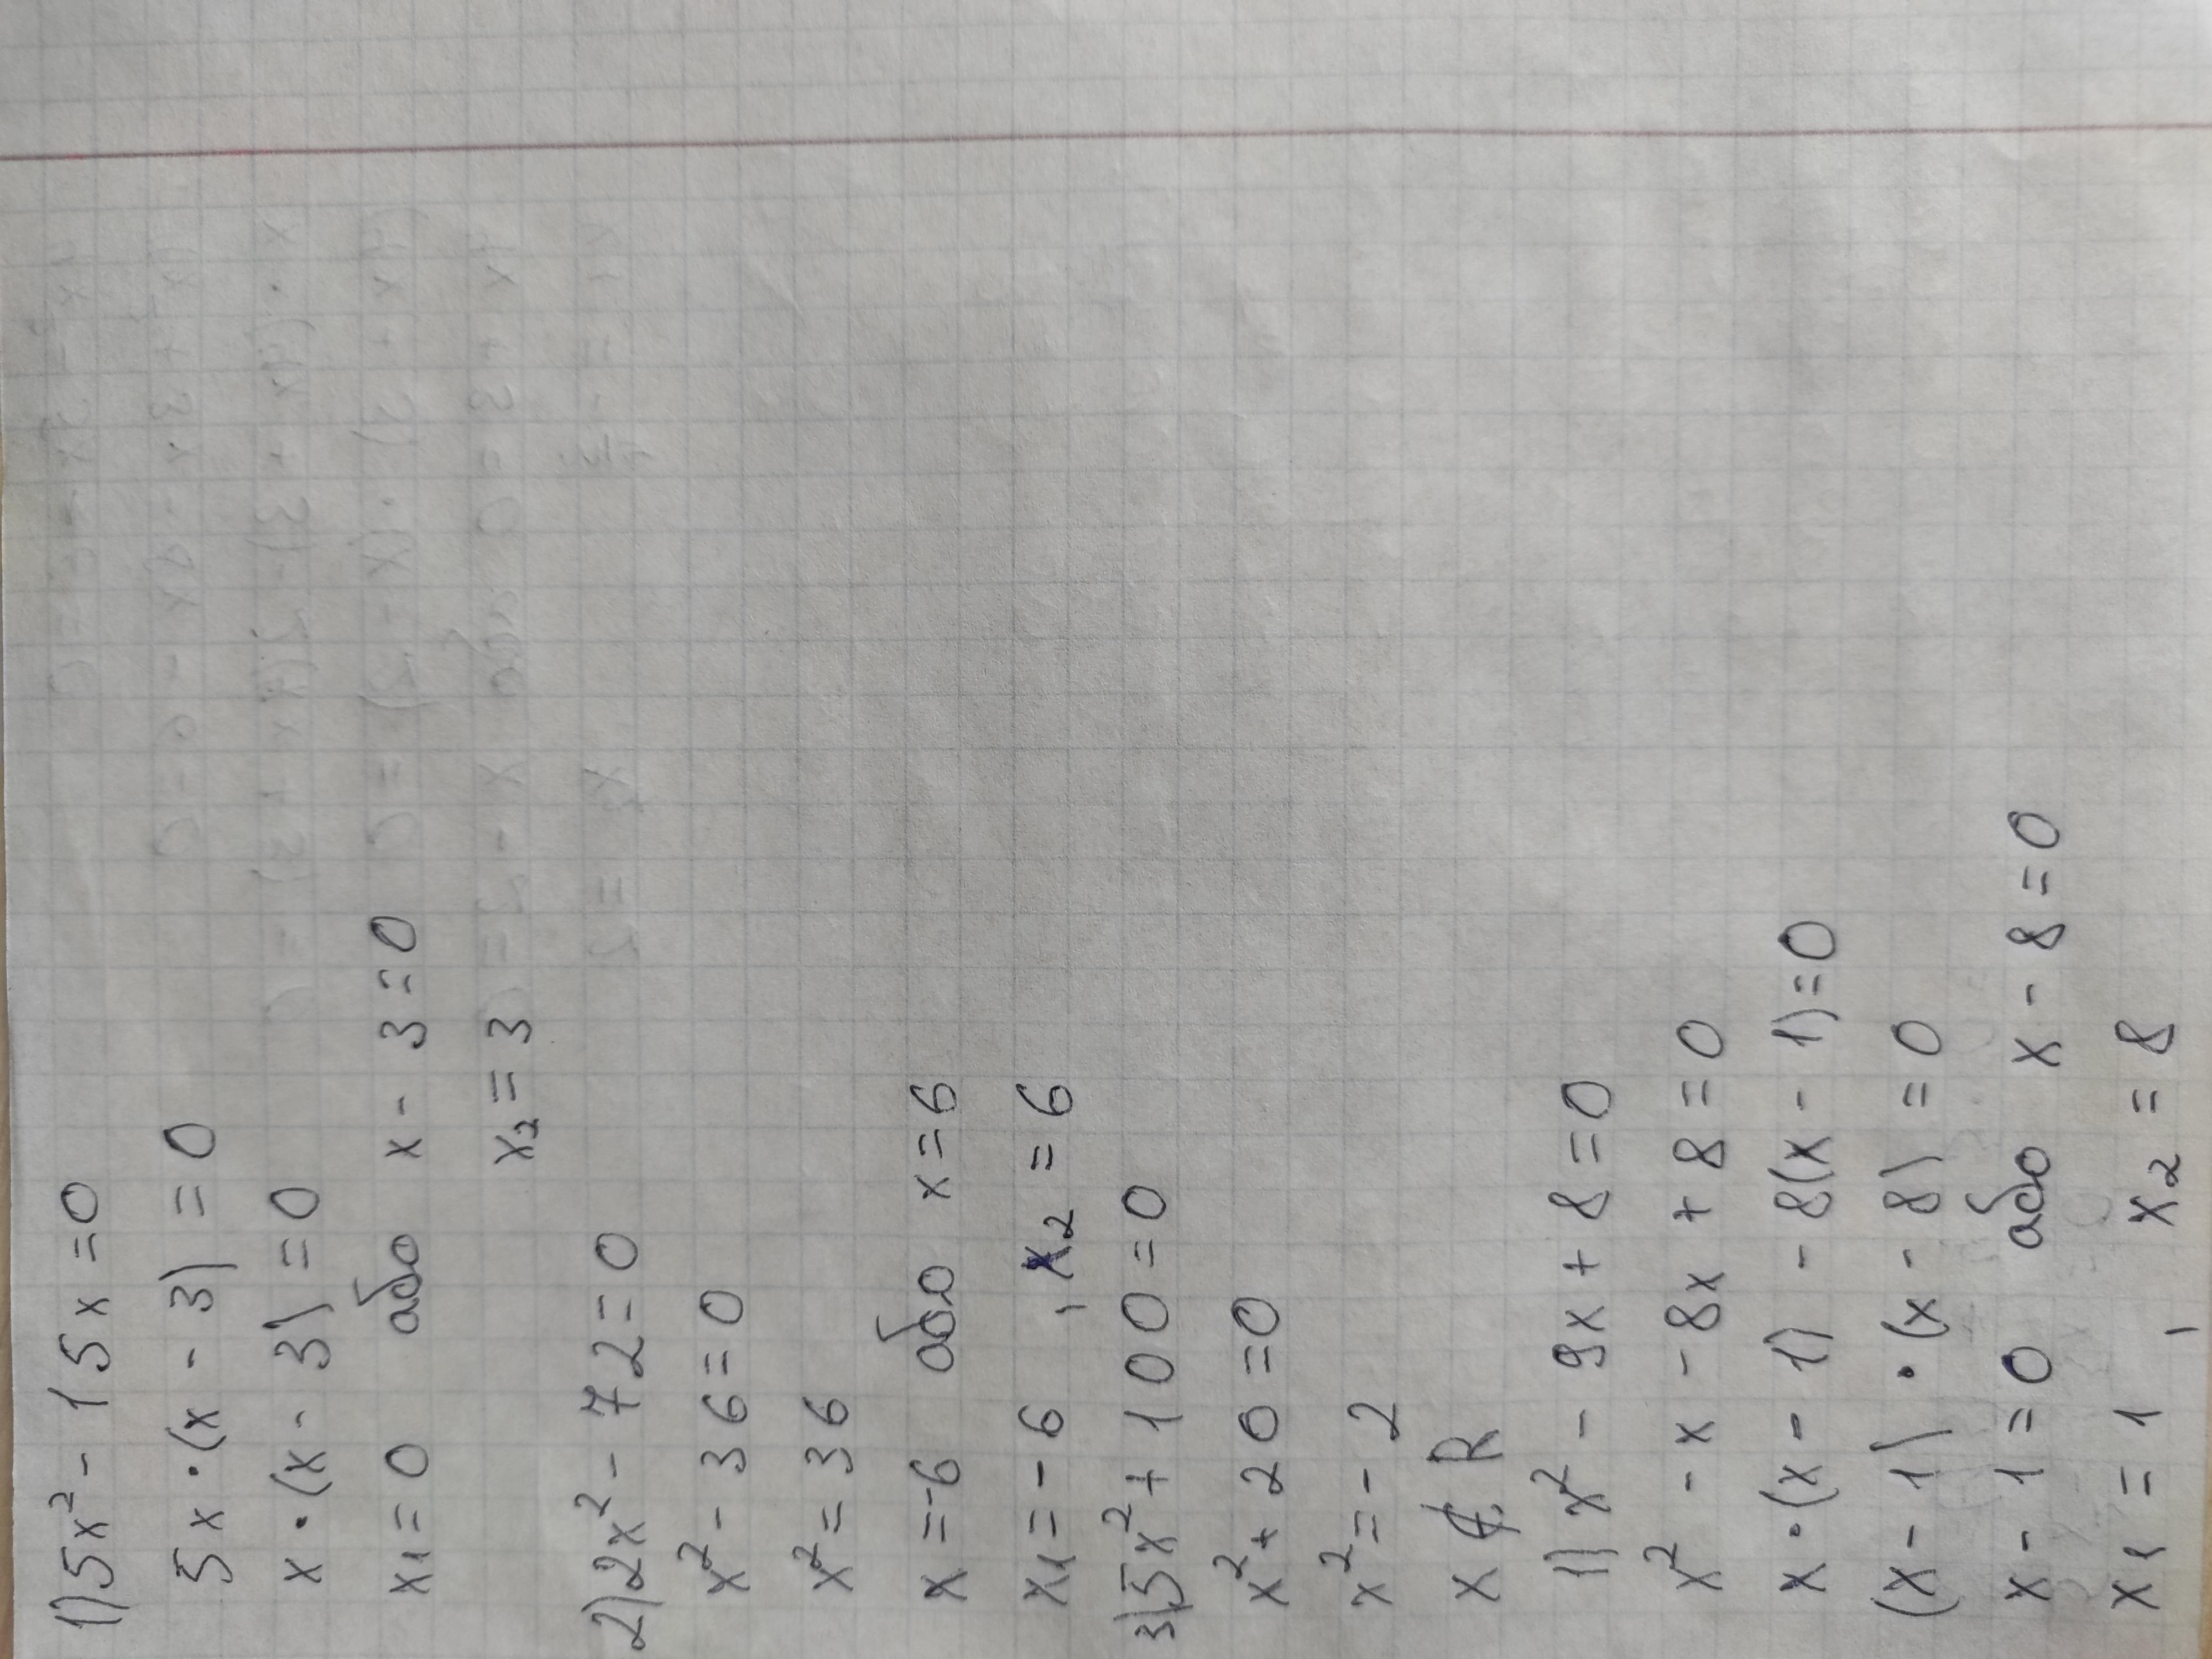 1) 5x² - 15x = 0
5x · (x - 3) = 0
x · (x - 3) = 0
x₁ = 0 або x - 3 = 0
x₂ = 3
2) 2x² - 72 = 0
x² - 36 = 0
x² = 36
x = -6 або x = 6
x₁ = -6 , x₂ = 6
3) 5x² + 100 = 0
x² + 20 = 0
x² = - 2
x ∉ R
1) x² - 9x + 8 = 0
x² - x - 8x + 8 = 0
x · (x - 1) - 8(x - 1) = 0
(x - 1) · (x - 8) = 0
x - 1 = 0 або x - 8 = 0
x₁ = 1 , x₂ = 8